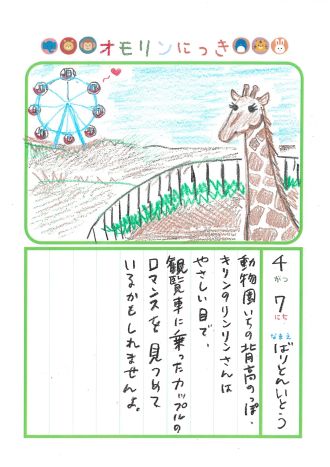 オモリンにっき
4がつ7にち なまえ ばりとんいとう
動物園いちの背高のっぽ、
キリンのリンリンさんは
やさしい目で、
観覧車に乗ったカップルの
ロマンスを見つめて
いるかもしれませんよ。